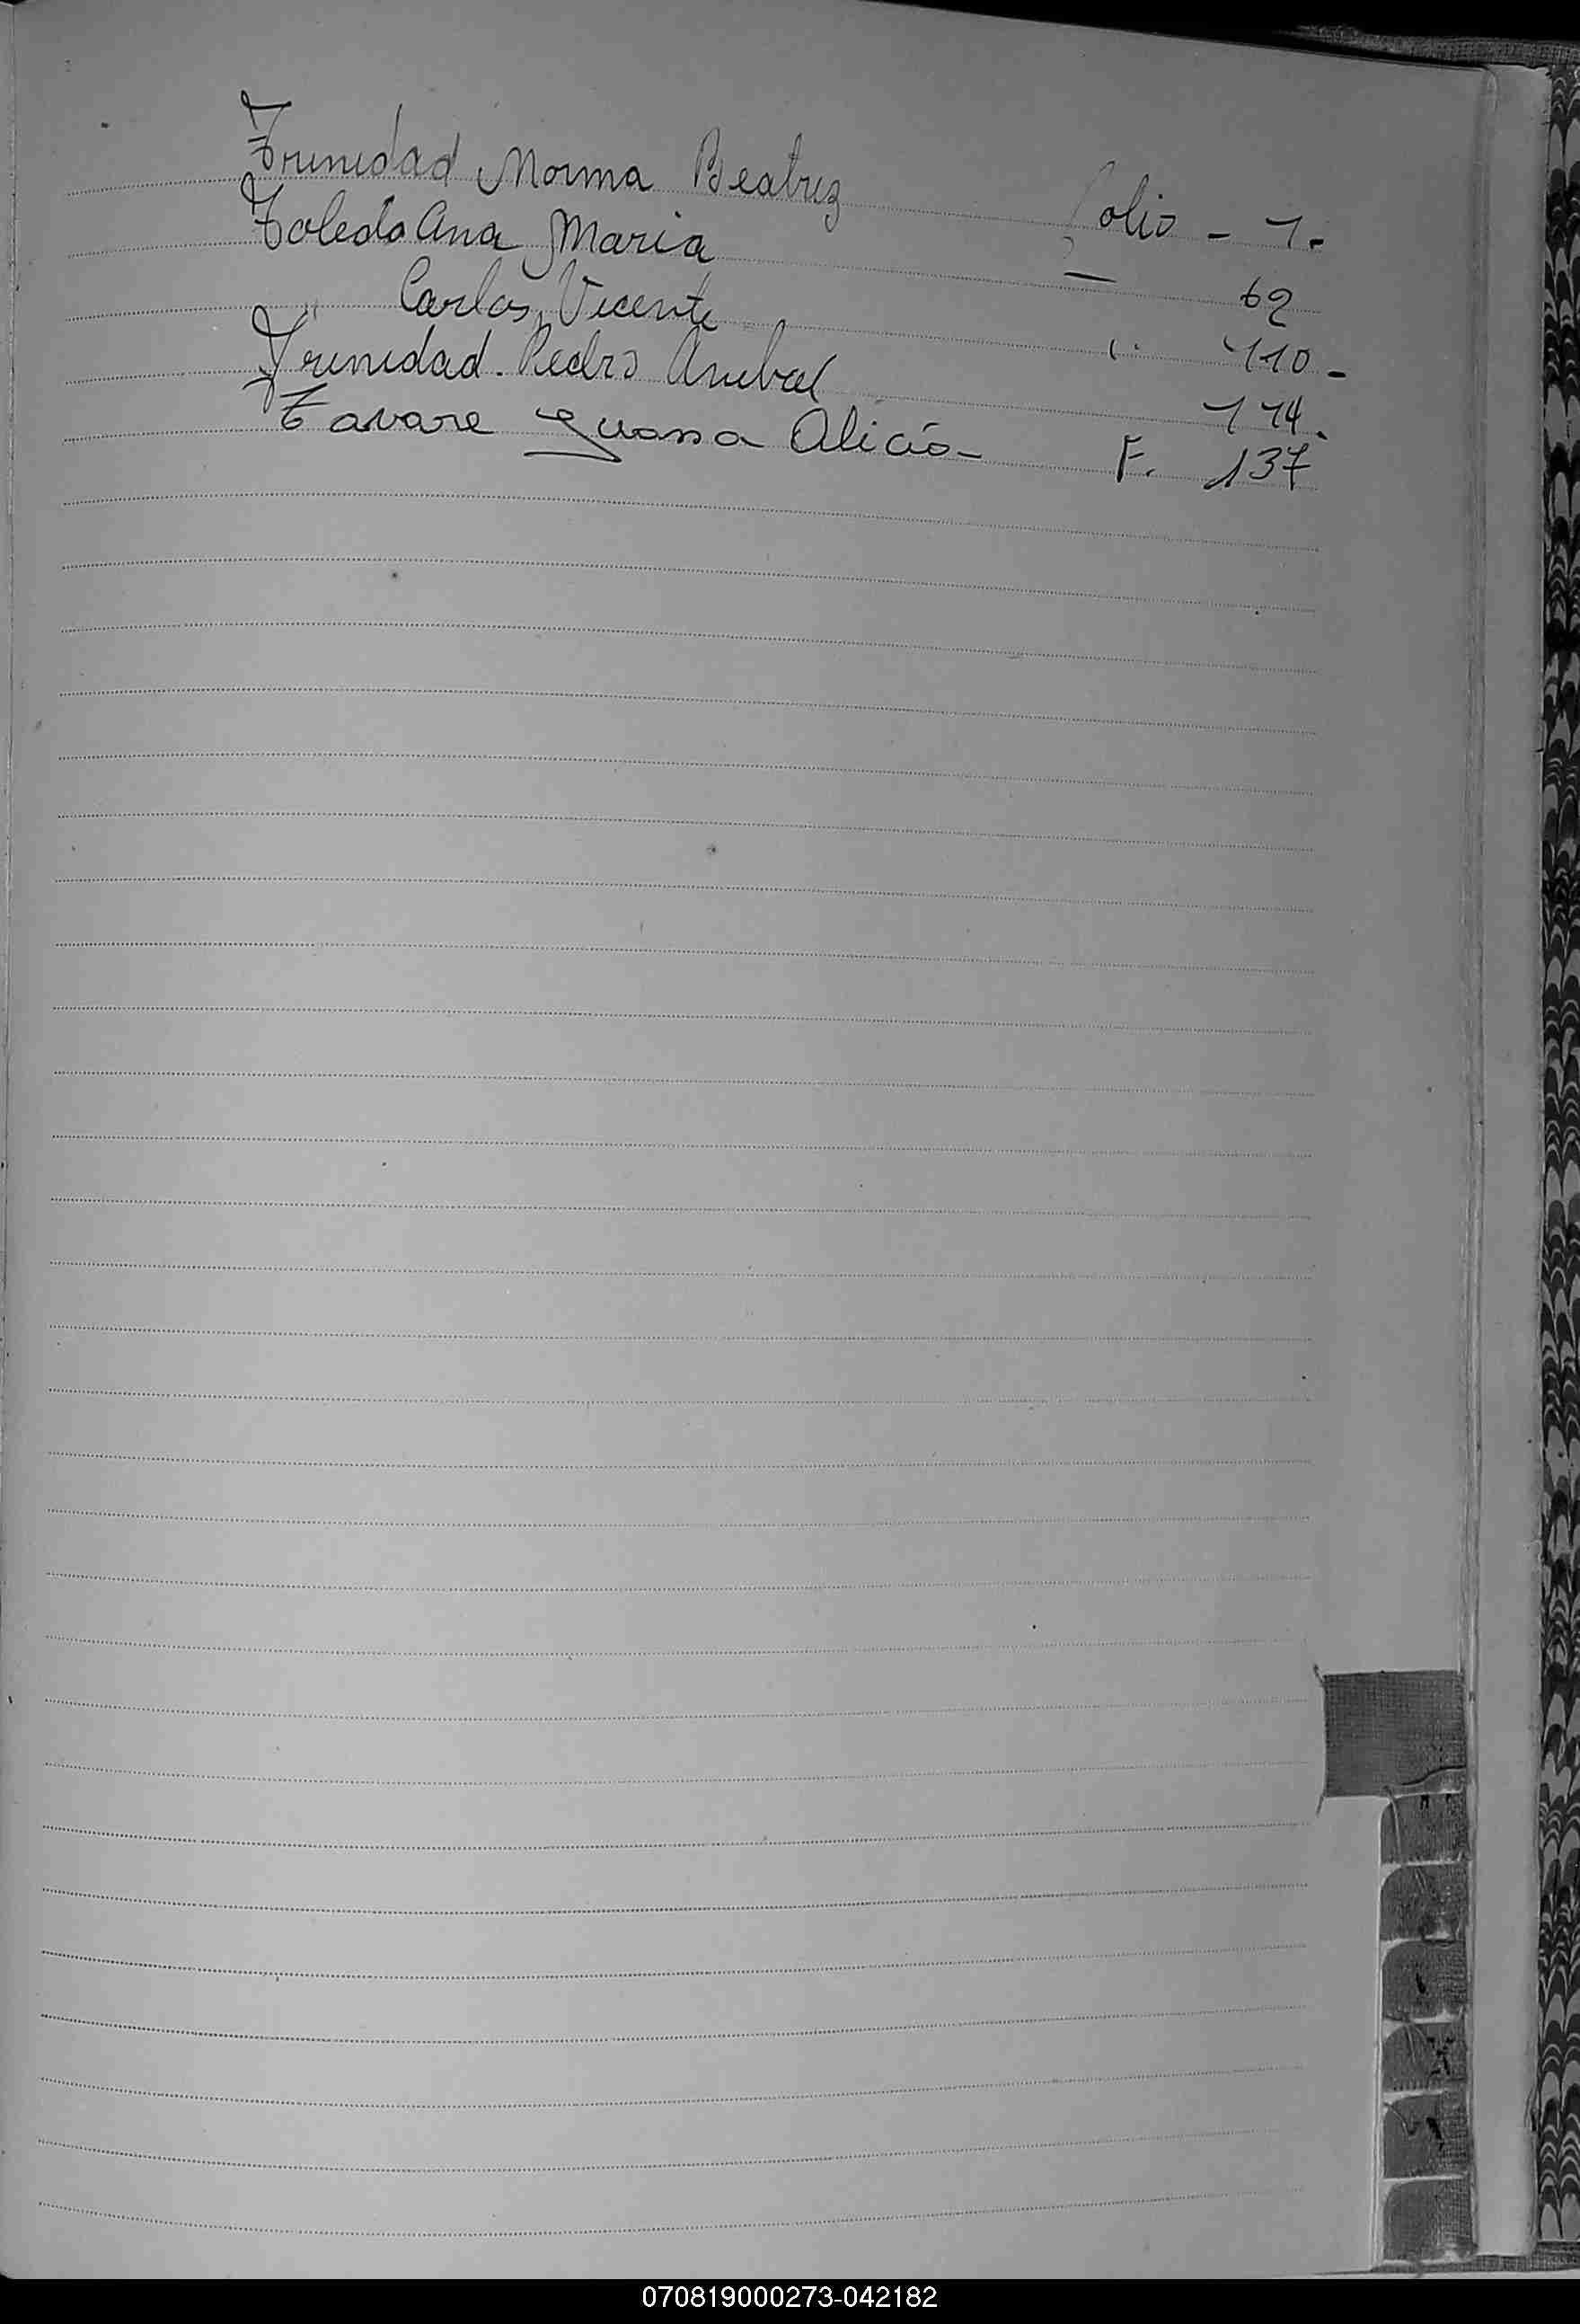 Trinidad Norma Beatriz Folio - 1.
Toledo Ana Maria — 62
" Carlos Vicente " 110 -
Trinidad. Pedro Anibal 114.
Tavare Juana Alicia - F. 137
070819000273-042182